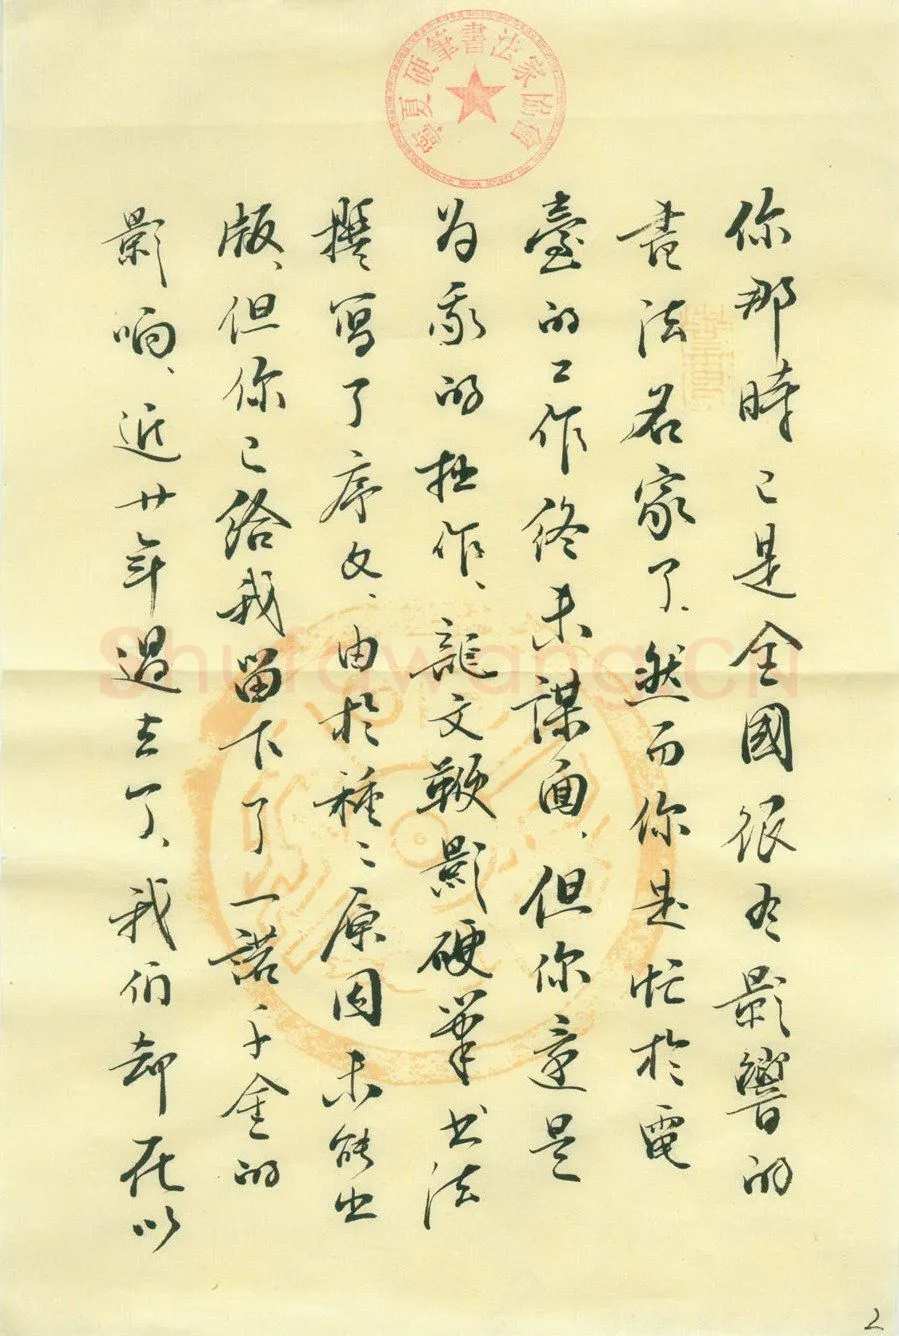 寧夏硬筆書法家協會
你那時已是全國很有影響的
書法名家了、然而你是忙於電
臺的工作終未謀面、但你還是
为我的拙作、龍文鞭影硬筆书法
撰寫了序文、由於種〻原因未能出
版、但你已給我留下了一諾千金的
影响、近廿年過去了、我们却在以
2
Shufawang.CN